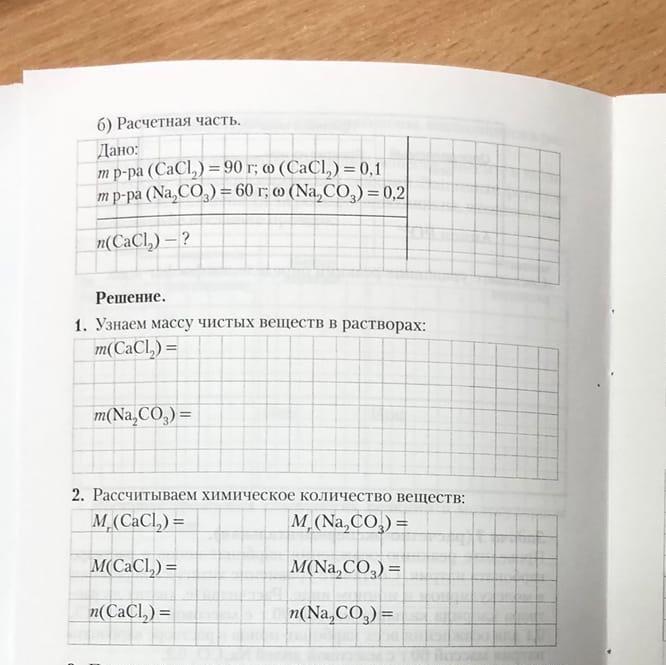 б) Расчетная часть.
Дано:
m р-ра (CaCl₂) = 90 г; ω (CaCl₂) = 0,1
m р-ра (Na₂CO₃) = 60 г; ω (Na₂CO₃) = 0,2
n(CaCl₂) – ?
Решение.
1. Узнаем массу чистых веществ в растворах:
m(CaCl₂) =
m(Na₂CO₃) =
2. Рассчитываем химическое количество веществ:
Mᵣ(CaCl₂) = Mᵣ(Na₂CO₃) =
M(CaCl₂) = M(Na₂CO₃) =
n(CaCl₂) = n(Na₂CO₃) =